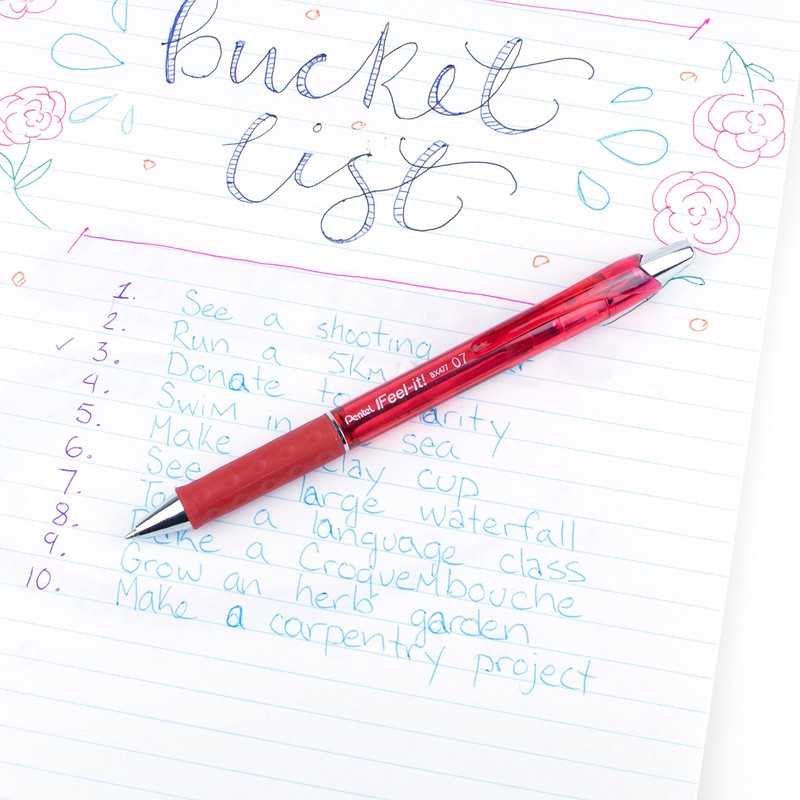 bucket
list
1. See a shooting
2. Run a 5Km
✓ 3. Donate to arity
4. Swim in sea
5. Make clay cup
6. See large waterfall
7. a language class
8. a Croquembouche
9. Grow an herb garden
10. Make a carpentry project
Pentel Feel-it! BX477 07